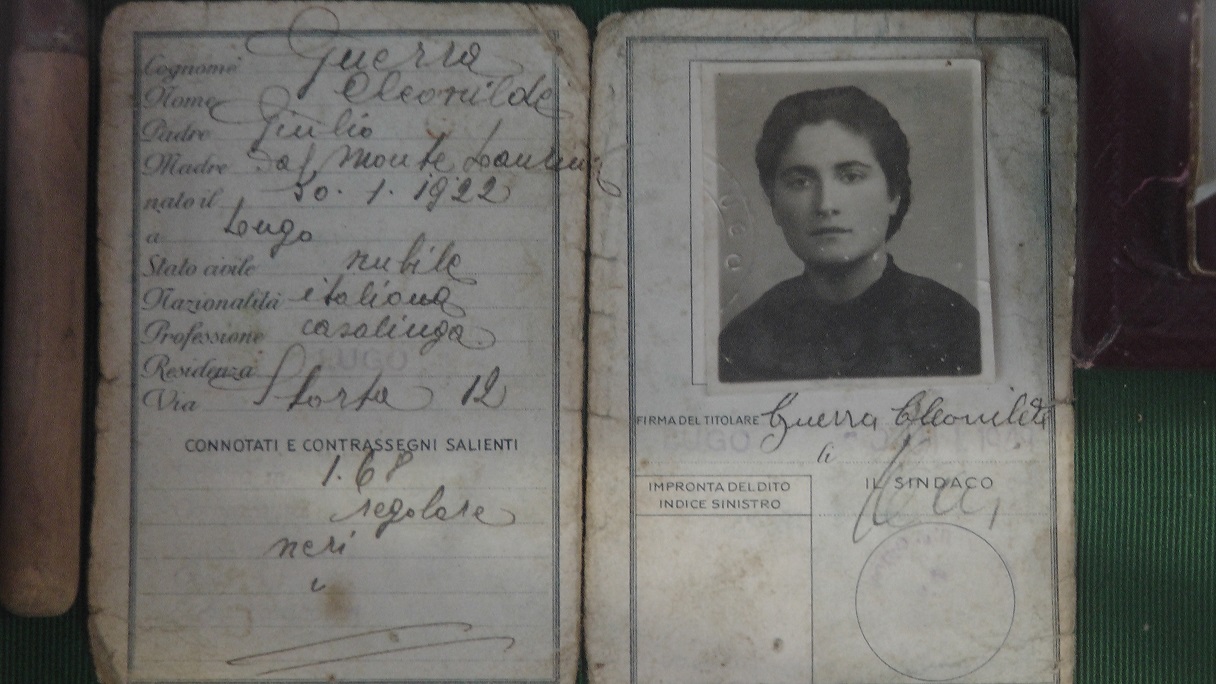 Cognome Guerra
Nome Cleonilde
Padre Giulio
Madre Dal Monte
nato il 30.1.1922
a Lugo
Stato civile nubile
Nazionalità italiana
Professione casalinga
Residenza
Via Storta 12
CONNOTATI E CONTRASSEGNI SALIENTI
1.68
regolare
neri
FIRMA DEL TITOLARE Guerra Cleonilde
li
IL SINDACO
IMPRONTA DEL DITO
INDICE SINISTRO